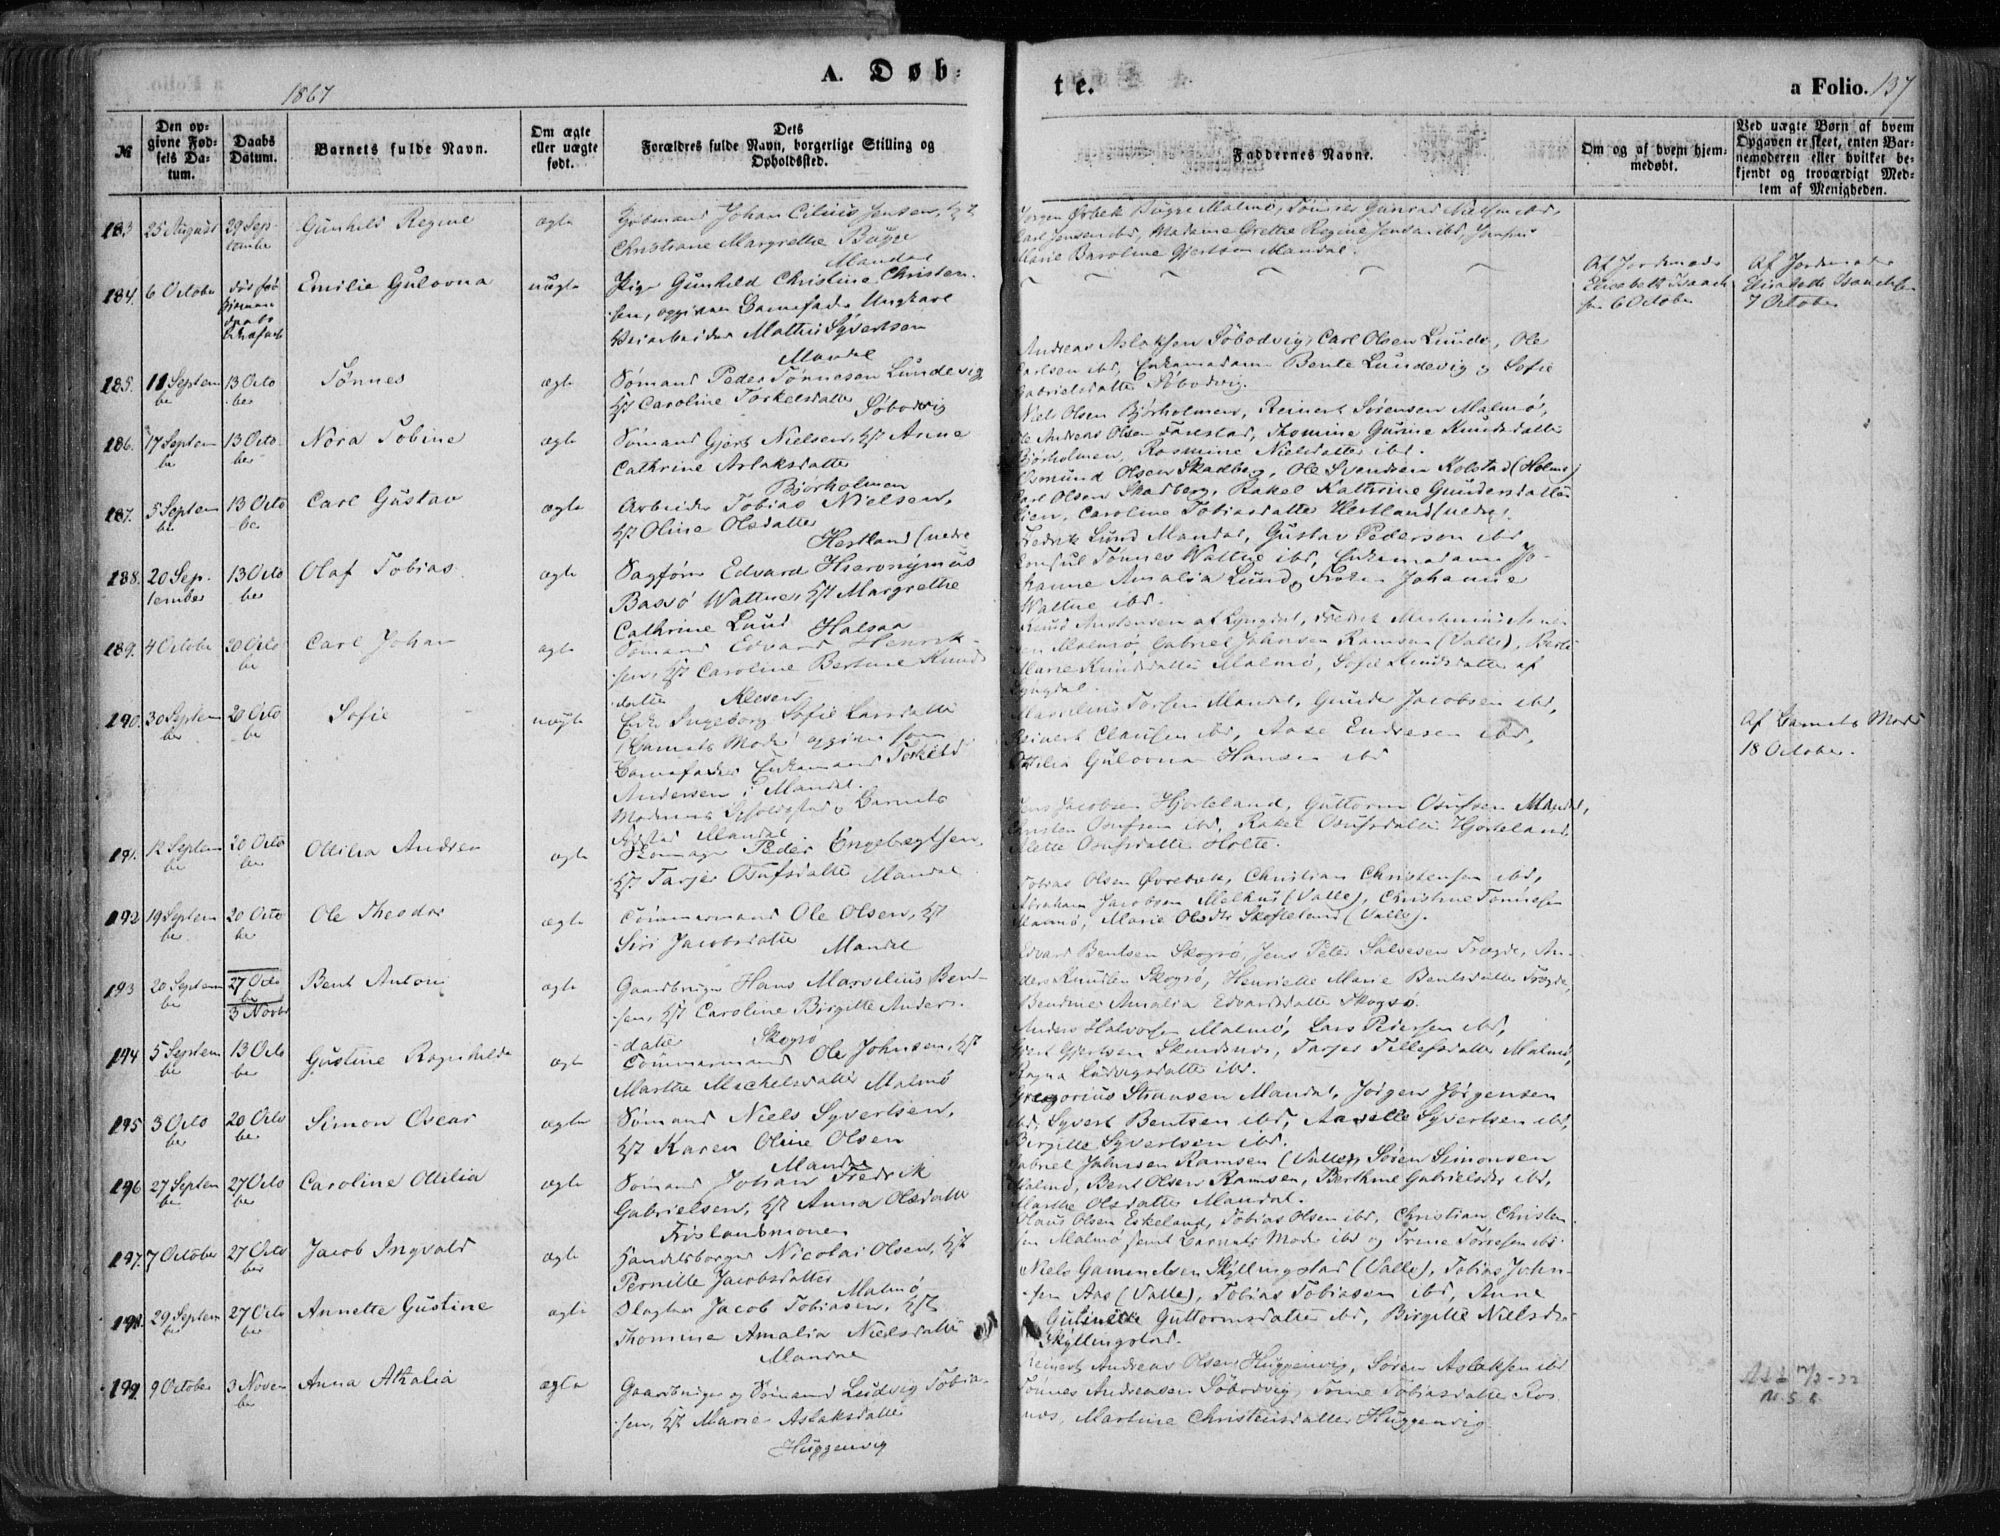 1867
A. Døb-
te.
a Folio. 137
№
Den op-
givne Fød-
sels Da-
tum.
Daabs
Datum.
Barnets fulde Navn.
Om ægte
eller uægte
født.
Dets
Forældres fulde Navn, borgerlige Stilling og
Opholdssted.
Faddernes Navne.
Om og af hvem hjem-
medøbt.
Ved uægte Børn af hvem
Opgaven er skeet, enten Bar-
nemoderen eller hvilket be-
kjendt og troværdigt Med-
lem af Menigheden.
183 25 August 29 Sep-
tember
Gunhild Regine
ægte
Johan Jensen, Hst
Christiane Margrethe Bugge
Mandal
Jørgen Ørbek Bugge Malmø, Gunvald Nielsen ibd,
Carl Jensen ibd, Madame Grethe Regine Jensen ibd,
Marie Baroline Gjertsen Mandal.
184. 6 October
Emilie Gulovna
uægte
Pige Gunhild Christine Christen-
sen, opgiven Barnefader Ungkarl
Veiarbeider Mathis Syvertsen
Mandal
Af Jordemoder
Elisabeth Isaach-
sen 6 October
Af Jordemoder
Elisabeth Isaachsen
7 October
185. 11 Septem
ber
13 Octo
ber
Tønnes
ægte
Sømand Peder Tønnesen Lundevig
Hst Caroline Torkelsdatter
Søbodvig
Andreas Aslaksen Søbodvig, Carl Olsen Lunde, Ole
Carlsen ibd, Enkemadam Bente Lundevig og Sofie
Gabrielsdatter Søbodvig.
186. 17 Septem
ber
13 Octo-
ber
Nora Tobine
ægte
Sømand Gjert Nielsen, Hst Anne
Cathrine Aslaksdatter
Bjørholmen
Niels Olsen Bjørholmen, Reinert Sørensen Malmø,
Ole Andreas Olsen Farestad, Thomine Gurine Knudsdatter
Bjørholmen, Rosmine Nielsdatter ibd.
187. 5 Septem
ber
13 Octo
ber
Carl Gustav
ægte
Arbeider Tobias Nielsen,
Hst Oline Olsdatter
Hestland (nedre
Osmund Olsen Skadberg, Ole Svendsen Kolstad (Holme)
Carl Olsen Skadberg, Rakel Kathrine Gundersdatter
Lien, Caroline Tobiasdatter Hestland (nedre).
188. 20 Sep-
tember
13 Octo
ber
Olaf Tobias
ægte
Sagfører Edvard Hieronymus
Bassø Wattne, Hst Margrethe
Cathrine Lund Halsaa
Fredrik Lund Mandal, Gustav Pedersen ibd
Consul Tønnes Wattne ibd, Enkemadam Jo-
hanne Amalia Lund, Frøken Johanne
Wattne ibd.
189. 4 October 20 Octo
ber
Carl Johan
ægte
Sømand Edvard Henrik-
sen, Hst Caroline Bertine Knuds-
datter Kleven
Knud Andersen af Lyngdal, Fredrik Martinius
Malmø, Gabriel Johnsen Ramsen (Valle),
Marie Knudsdatter Malmø, Sofie Knudsdatter af
Lyngdal.
190. 30 Septem
ber
20 Octo
ber
Sofie
uægte
Enke Ingeborg Sofie Larsdatter
(Barnets Moder) opgiver som
Barnefader Enkemand Torkild
Andersen i Mandal.
Moderens Opholdssted og Barnets
Fødsted Mandal
Marselius Torsen Mandal, Gunder Jacobsen ibd,
Reinert Clausen ibd, Aase Endresen ibd,
Ottilia Gulovna Hansen ibd
Af Barnets Moder
18 October.
191. 12 Septem
ber
20 Octo
ber
Ottilia Andrea
ægte
Skomager Peder Engebregtsen,
Hst Tarjer Osufsdatter Mandal
Jens Jacobsen Hjorteland, Guttorm Osufsen Mandal,
Carsten Osufsen ibd, Rakel Osufsdatter Hjorteland,
Alette Osufsdatter Holte.
192 19 Septem
ber
20 Octo
ber
Ole Theodor
ægte
Tømmermand Ole Olsen, Hst
Siri Jacobsdatter Mandal
Tobias Olsen Øvrebek, Christian Christensen ibd,
Abraham Jacobsen Melhus (Valle), Christine Tønnesen
Malmø, Marie Olsdtr Skofteland (Valle).
193 20 Septem
ber
27 Octo
ber
3 Novbr
Bent Anton
ægte
Gaardbruger Hans Marselius Bend-
sen, Hst Caroline Birgitte Anders-
datter Skogsø
Edvard Bentsen Skogsø, Jens Peter Salvesen Trægde, An-
ders Knudsen Skogsø, Henriette Marie Bentsdatter Trægde,
Bendine Amalia Edvardsdatter Skogsø.
194 5 Septem
ber
13 Octo
ber
Gustine Ragnhilda
ægte
Tømmermand Ole Johnsen, Hst
Marthe Michelsdatter Malmø
Anders Halvorsen Malmø, Lars Pedersen ibd,
Gjert Gjertsen Skendsnes, Tarjer Tellefsdatter Malmø,
Ragna Ludvigsdatter ibd.
195 3 Octo
ber
20 Octo
ber
Simon Oscar
ægte
Sømand Niels Syvertsen,
Hst Karen Oline Olsen
Mandal
Gregorius Straasen Mandal, Jørgen Jørgensen
ibd, Syvert Bentsen ibd, Aasille Syvertsen ibd,
Birgitte Syvertsen ibd.
196 27 Septem
ber
27 Octo
ber
Caroline Ottilia
ægte
Sømand Johan Fredrik
Gabrielsen, Hst Anna Olsdatter
Frislandsmonen
Gabriel Johnsen Ramsen (Valle), Søren Simonsen
Malmø, Bent Olsen Ramsen, Berthine Gabrielsdtr ibd,
Marthe Olsdatter Mandal.
197. 7 October 27 Octo
ber
Jacob Ingvald
ægte
Handelsborger Nicolai Olsen, Hst
Pernille Jacobsdatter
Malmø
Claus Olsen Eskeland, Tobias Olsen ibd, Christian Christen-
sen Malmø samt Barnets Moder ibd og Trine Torresen ibd.
198. 29 Septem
ber
27 Octo
ber
Annette Gustine
ægte
Slagter Jacob Tobiasen, Hst
Thomine Amalia Nielsdatter
Mandal
Niels Gamundsen Skyllingstad (Valle), Tobias John-
sen Aas (Valle), Tobias Tobiasen ibd, Anne
Gulinelle Guttormsdatter ibd, Birgitte Nielsdr
Skyllingstad.
199. 9 October 3 Novem
ber
Anna Athalia
ægte
Gaardbruger og Sømand Ludvig Tobia-
sen, Hst Marie Aslaksdatter
Huggenvig
Reinert Andreas Olsen Huggenvig, Søren Aslaksen ibd
Tønnes Andreasen Søbodvig, Tomine Tobiasdatter Ros-
nes, Martine Christensdatter Huggenvig